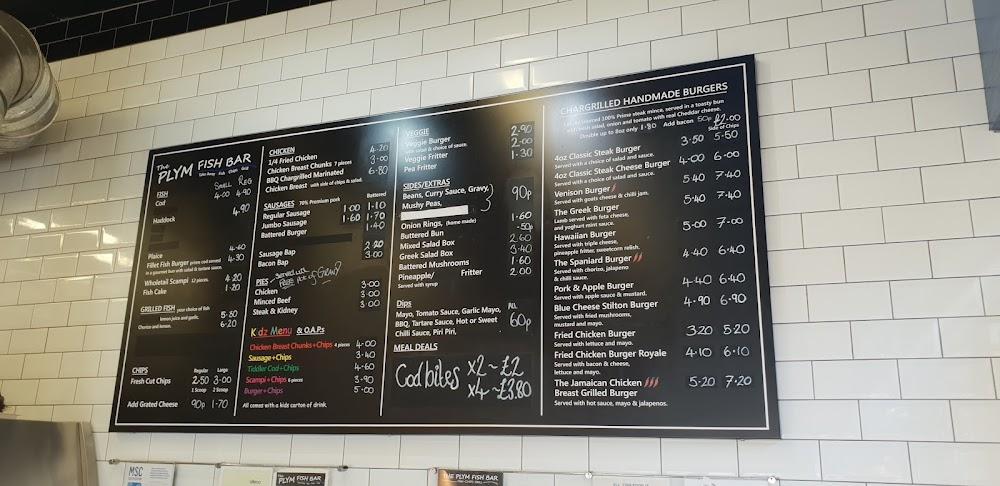 The
PLYM FISH BAR
FISH
SMALL REG
Cod 4·00 4·90
Haddock 4.90
Plaice 4·60
Fillet Fish Burger prime cod served 4·30
in a gourmet bun with salad & tartare sauce.
Wholetail Scampi 12 pieces. 4·20
Fish Cake 1·20
GRILLED FISH your choice of fish
lemon juice and garlic. 5·80
Chorizo and lemon. 6·20
CHIPS Regular Large
Fresh Cut Chips 2·50 3·00
1 Scoop 2 Scoop
Add Grated Cheese 90p 1·70
CHICKEN
1/4 Fried Chicken 4·20
Chicken Breast Chunks 7 pieces 3·00
BBQ Chargrilled Marinated 6·80
Chicken Breast with side of chips & salad.
SAUSAGES 70% Premium pork Battered
Regular Sausage 1·00 1·10
Jumbo Sausage 1·60 1·70
Battered Burger 1·40
Sausage Bap 2·20
Bacon Bap 3·00
PIES served with FREE POT OF GRAVY
Chicken 3·00
Minced Beef 3·00
Steak & Kidney 3·00
Kidz Menu & O.A.Ps
Chicken Breast Chunks+Chips 4 pieces 4·00
Sausage+Chips 3·40
Tiddler Cod+Chips 4·60
Scampi+Chips 6 pieces 3·90
Burger+Chips 5·00
All comes with a kids carton of drink.
VEGGIE
Veggie Burger 2·90
with salad & choice of sauce.
Veggie Fritter 2·00
Pea Fritter 1·30
SIDES/EXTRAS
Beans, Curry Sauce, Gravy, 90p
Mushy Peas,
Onion Rings, (home made) 1·60
Battered Bun ·50p
Mixed Salad Box 2·60
Greek Salad Box 3·40
Battered Mushrooms 1·60
Pineapple/ Fritter 2·00
Served with syrup
Dips
Mayo, Tomato Sauce, Garlic Mayo, ALL
BBQ, Tartare Sauce, Hot or Sweet 60p
Chilli Sauce, Piri Piri,
MEAL DEALS
Cod bites x2 ~ £2
x4 ~ £3.80
CHARGRILLED HANDMADE BURGERS
sourced 100% Prime steak mince, served in a toasty bun
with fresh salad, onion and tomato with real Cheddar cheese.
Double up to 8oz only 1·80 Add bacon 50p £2.00
Side of Chips
4oz Classic Steak Burger 3·50 5·50
Served with a choice of salad and sauce.
4oz Classic Steak Cheese Burger 4·00 6·00
Served with a choice of salad and sauce.
Venison Burger 5·40 7·40
Served with goats cheese & chilli jam.
The Greek Burger 5·40 7·40
Lamb served with feta cheese,
and yoghurt mint sauce.
Hawaiian Burger 5·00 7·00
Served with triple cheese,
pineapple fritter, sweetcorn relish.
The Spaniard Burger 4·40 6·40
Served with chorizo, jalapeno
& chilli sauce.
Pork & Apple Burger 4·40 6·40
Served with apple sauce & mustard.
Blue Cheese Stilton Burger 4·90 6·90
Served with fried mushrooms,
mustard and mayo.
Fried Chicken Burger 3·20 5·20
Served with lettuce and mayo.
Fried Chicken Burger Royale 4·10 6·10
Served with bacon & cheese,
lettuce and mayo.
The Jamaican Chicken 5·20 7·20
Breast Grilled Burger
Served with hot sauce, mayo & jalapenos.
MSC
PLYM FISH BAR
THE PLYM FISH BAR